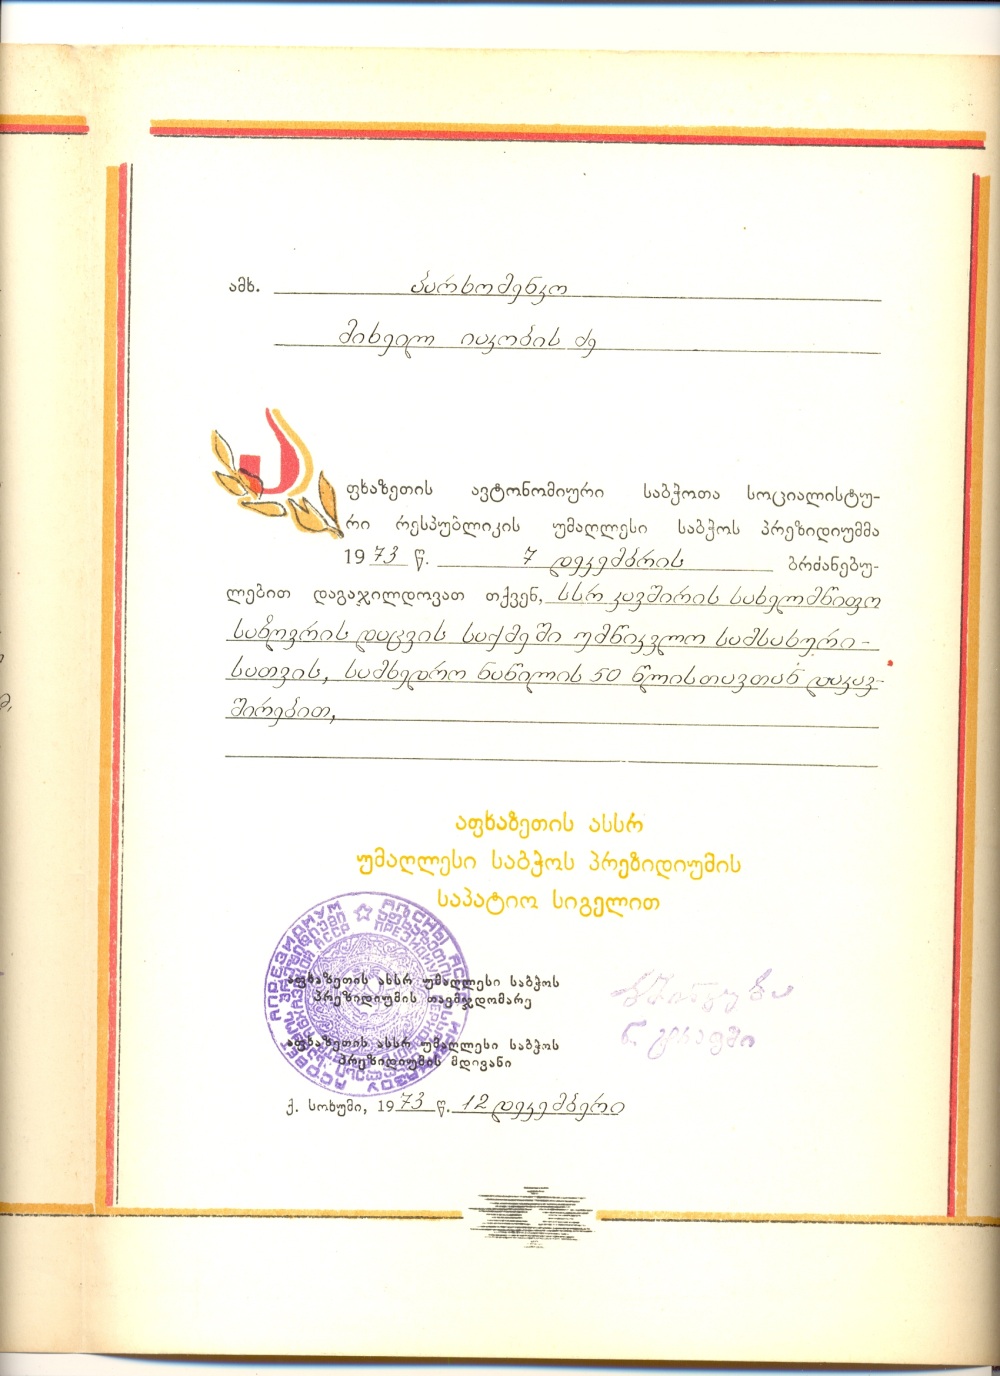 ამხ. პარხომენკო
მიხეილ იაკობის ძე
აფხაზეთის ავტონომიური საბჭოთა სოციალისტუ-
რი რესპუბლიკის უმაღლესი საბჭოს პრეზიდიუმმა
1973 წ. 7 დეკემბრის ბრძანებუ-
ლებით დაგაჯილდოვათ თქვენ, სსრ კავშირის სახელმწიფო
საზღვრის დაცვის საქმეში უმწიკვლო სამსახური-
სათვის, სამხედრო ნაწილის 50 წლისთავთან დაკავ-
შირებით,
აფხაზეთის ასსრ
უმაღლესი საბჭოს პრეზიდიუმის
საპატიო სიგელით
აფხაზეთის ასსრ უმაღლესი საბჭოს
პრეზიდიუმის თავმჯდომარე
აფხაზეთის ასსრ უმაღლესი საბჭოს
პრეზიდიუმის მდივანი
ქ. სოხუმი, 1973 წ. 12 დეკემბერი